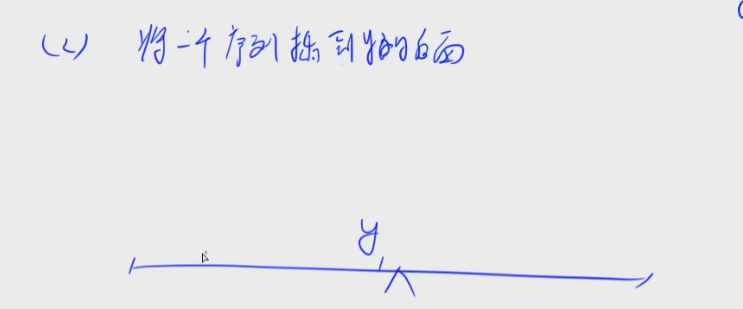 (2) 将一个序列插到y的后面
y